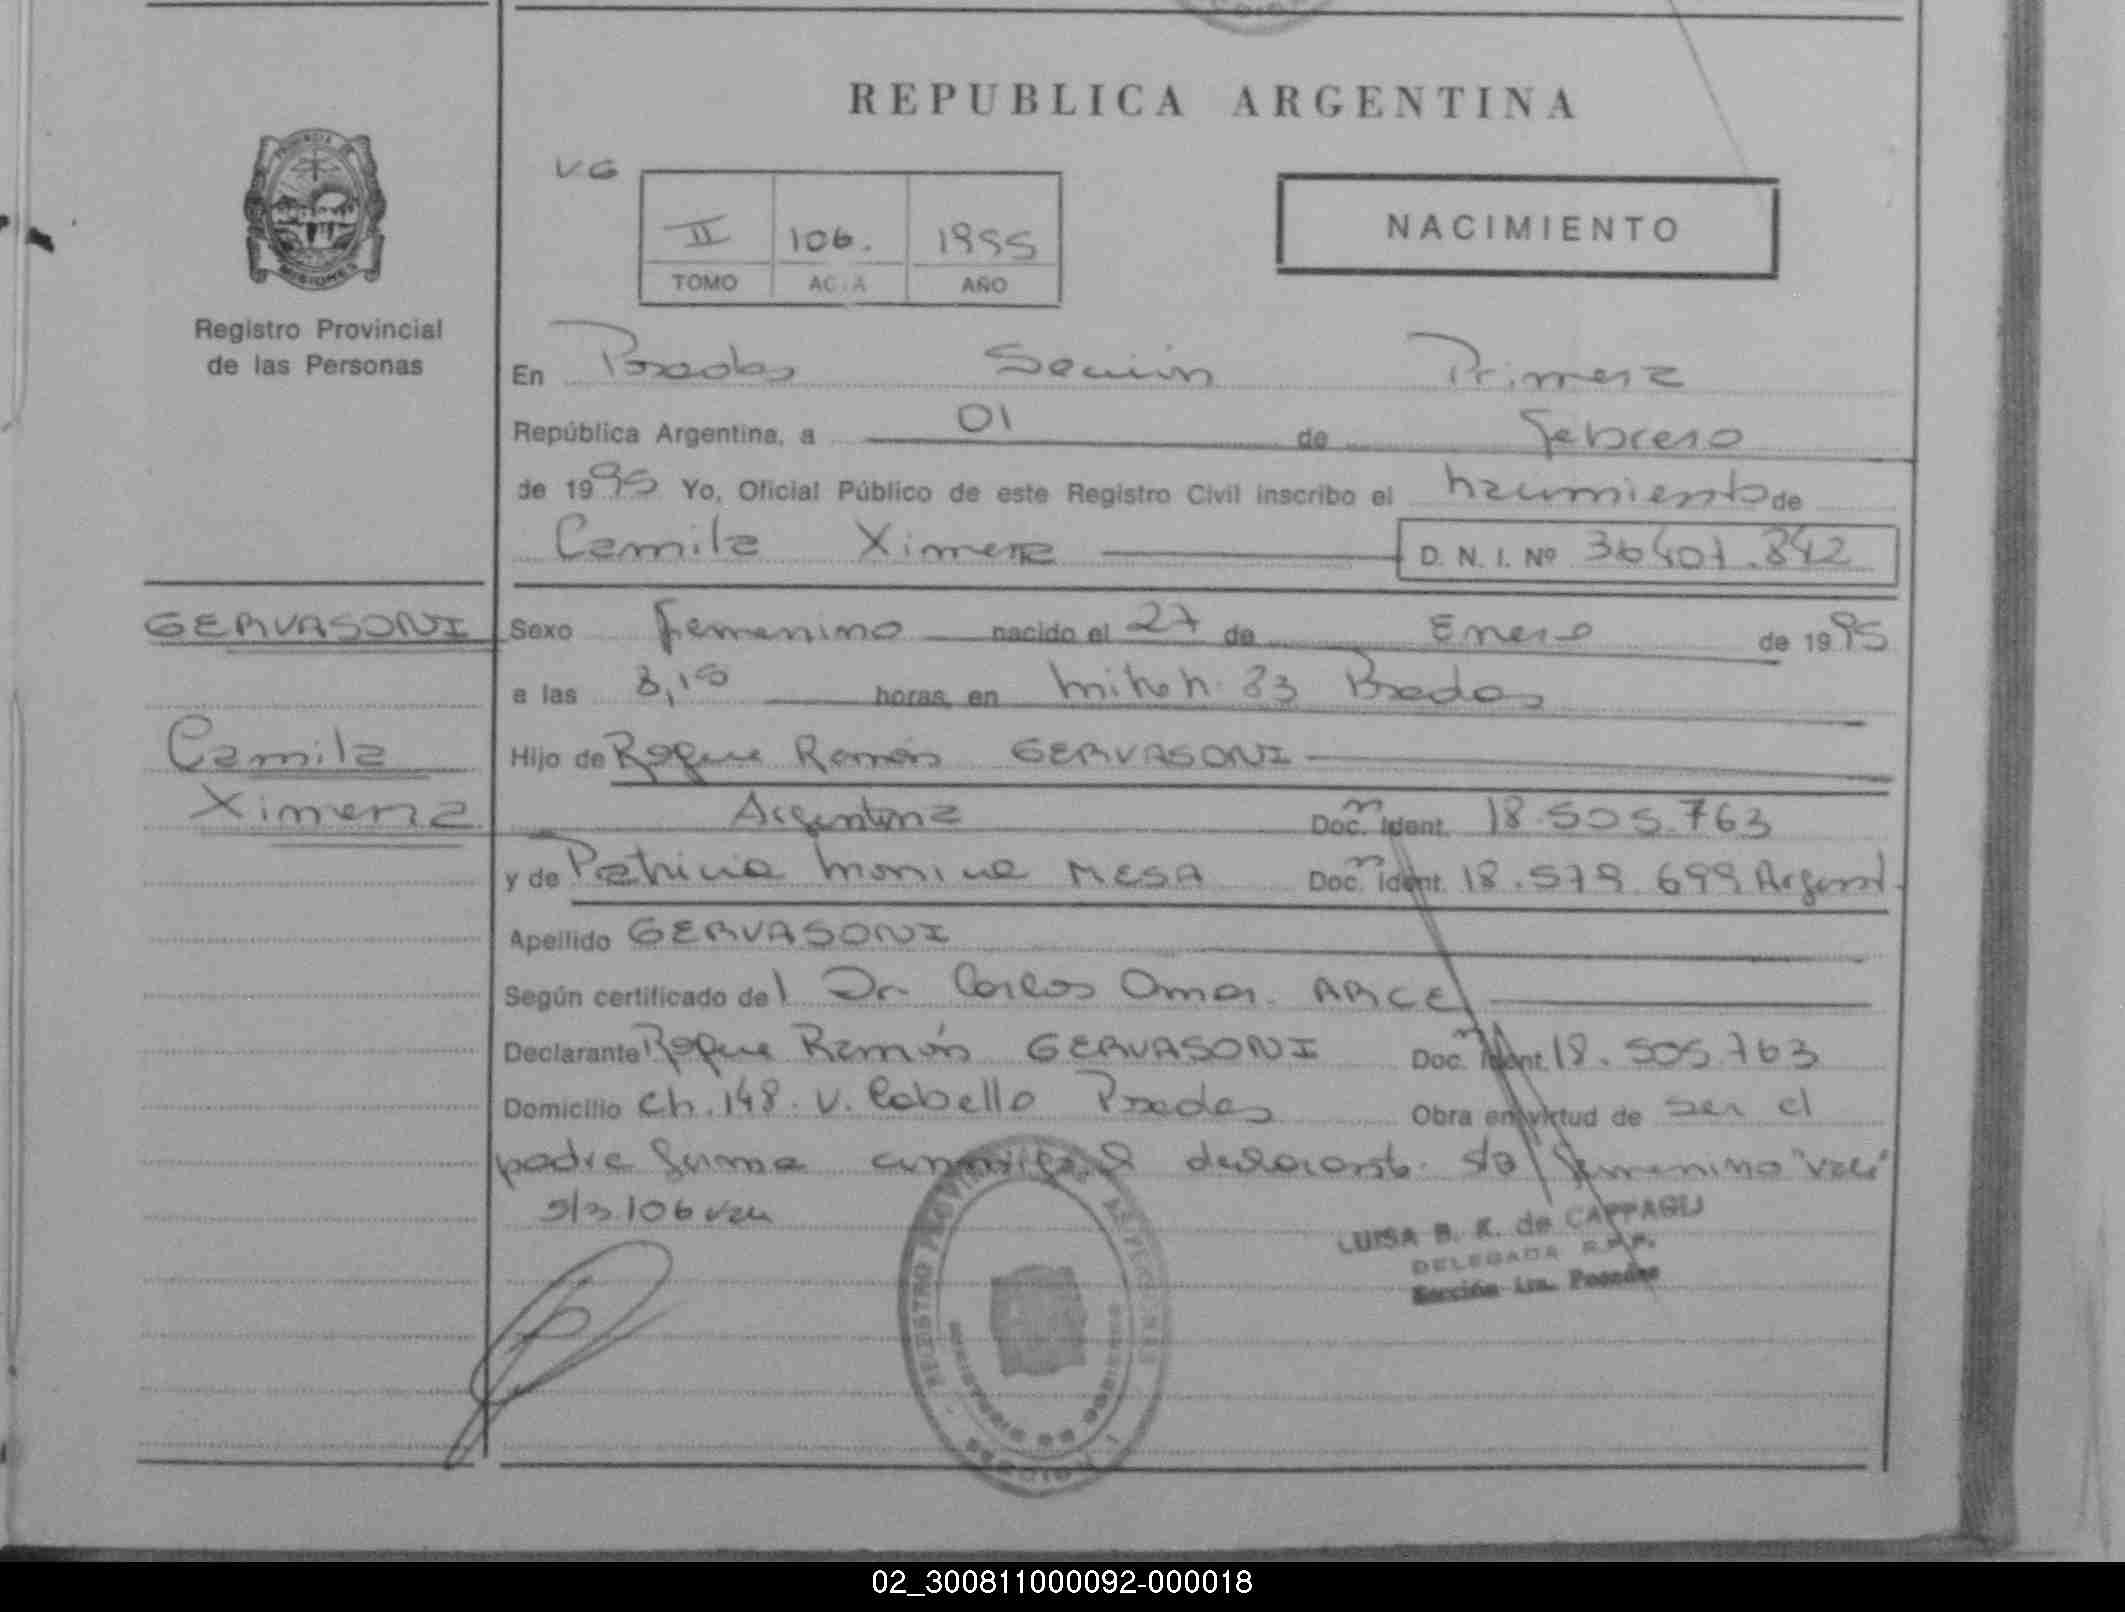 REPUBLICA ARGENTINA
V.G
II 106. 1995
TOMO ACTA AÑO
NACIMIENTO
PROVINCIA DE
MISIONES
Registro Provincial
de las Personas
En Posadas Sección Primera
República Argentina, a 01 de febrero
de 1995 Yo, Oficial Público de este Registro Civil inscribo el nacimiento de
Camila Ximena D. N. I. Nº 36407.842
GERVASONI
Camila
Ximena
Sexo femenino nacido el 27 de Enero de 1995
a las 8,10 horas, en 83 Posadas
Hijo de Roque Ramón GERVASONI
Argentina Doc. Ident. 18.505.763
y de Patricia Monica MESA Doc. Ident. 18.579.699 Argent.
Apellido GERVASONI
Según certificado del Dr Carlos Omar ARCE
Declarante Roque Ramón GERVASONI Doc. Ident. 18.505.763
Domicilio Ch. 148. V. Cabello Posadas Obra en virtud de ser el
padre firma declarante. s/a femenino "vale"
106 vale
REGISTRO PROVINCIAL DE LAS PERSONAS
MINISTERIO DE GOBIERNO
MISIONES
LUISA B. K. de CAPPAGLI
DELEGADA R.P.P.
Sección 1ra. Posadas
02_300811000092-000018